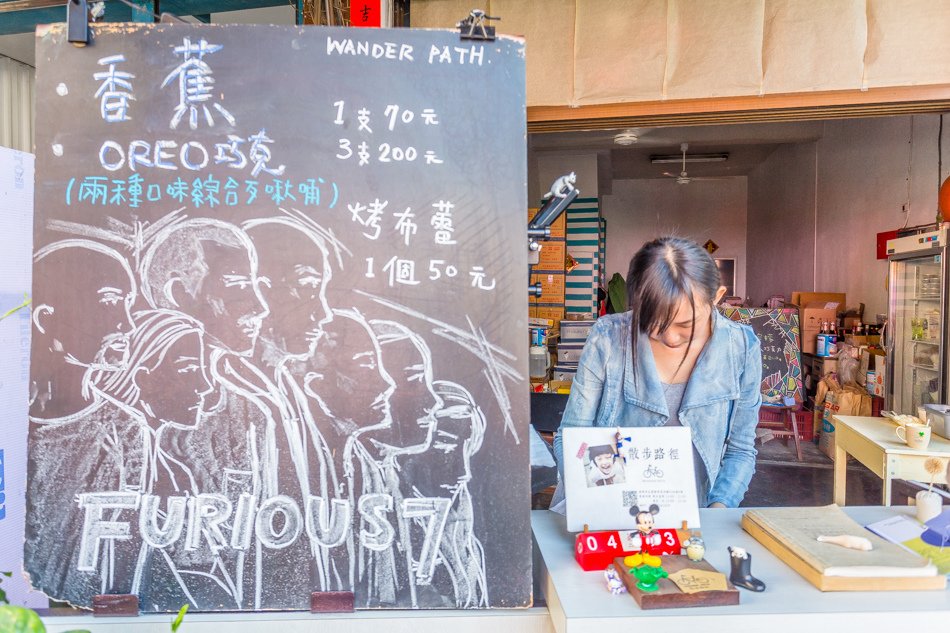 吉
香蕉
OREO巧克
(兩種口味綜合ㄋ啾哺)
WANDER PATH.
1支70元
3支200元
烤布蕾
1個50元
FURIOUS 7
散步路徑
04
3